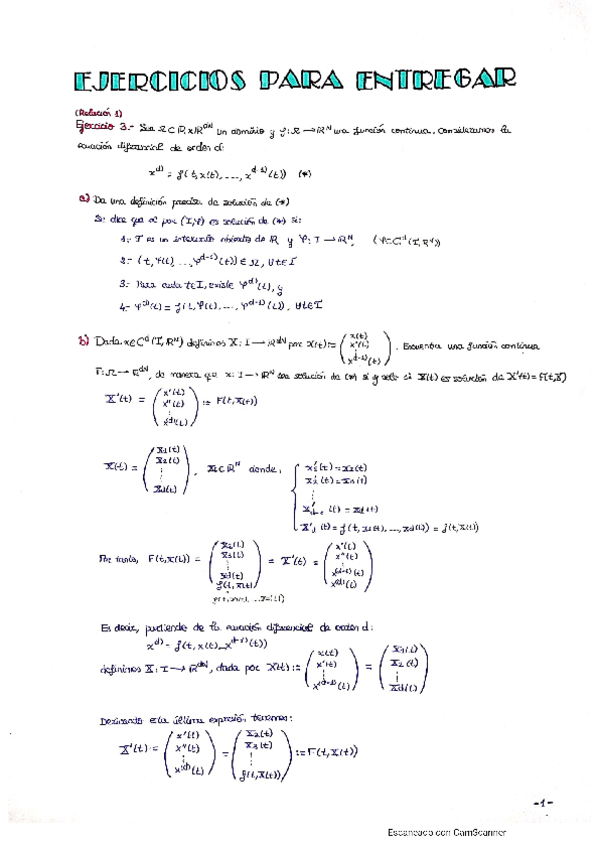 EJERCICIOS PARA ENTREGAR
(Relación 1)
Ejercicio 3.- Sea Ω ⊂ ℝ×ℝ^dN un dominio y f: Ω → ℝ^N una función continua. Consideramos la
ecuación diferencial de orden d:
x^d) = f(t, x(t), ..., x^d-1)(t)) (*)
a) Da una definición precisa de solución de (*)
Se dice que el par (I,φ) es solución de (*) si:
1.- I es un intervalo abierto de ℝ y φ: I → ℝ^N, (φ∈C^d(I,ℝ^N))
2.- (t, φ(t), ..., φ^d-1)(t)) ∈ Ω, ∀t∈I
3.- Para cada t∈I, existe φ^d)(t), y
4.- φ^d)(t) = f(t, φ(t), ..., φ^d-1)(t)), ∀t∈I
b) Dada x∈C^d(I,ℝ^N) definimos X: I → ℝ^dN por X(t):= (x(t) x'(t) ⋮ x^d-1)(t)). Encuentra una función continua
F: Ω → ℝ^dN, de manera que x: I → ℝ^N sea solución de (*) si y solo si X(t) es solución de X'(t) = F(t,X)
X'(t) = (x'(t) x''(t) ⋮ x^d)(t)) := F(t,X(t))
X(t) = (X1(t) X2(t) ⋮ Xd(t)), Xi∈ℝ^N donde:
x1'(t) = x2(t)
x2'(t) = x3(t)
⋮
x'd-1(t) = xd(t)
x'd(t) = f(t, x1(t), ..., xd(t)) = f(t,X(t))
Por tanto, F(t,X(t)) = (X2(t) X3(t) ⋮ Xd(t) f(t,X(t))) = X'(t) = (x'(t) x''(t) ⋮ x^d-1)(t) x^d)(t))
f(t, x1(t), ..., xd(t))
Es decir, partiendo de la ecuación diferencial de orden d:
x^d) = f(t, x(t), ..., x^d-1)(t))
definimos X: I → ℝ^dN, dada por X(t):= (x(t) x'(t) ⋮ x^d-1)(t)) = (X1(t) X2(t) ⋮ Xd(t))
Derivando esta última expresión tenemos:
X'(t) = (x'(t) x''(t) ⋮ x^d)(t)) = (X2(t) X3(t) ⋮ f(t,X(t))) := F(t,X(t))
-1-
Escaneado con CamScanner